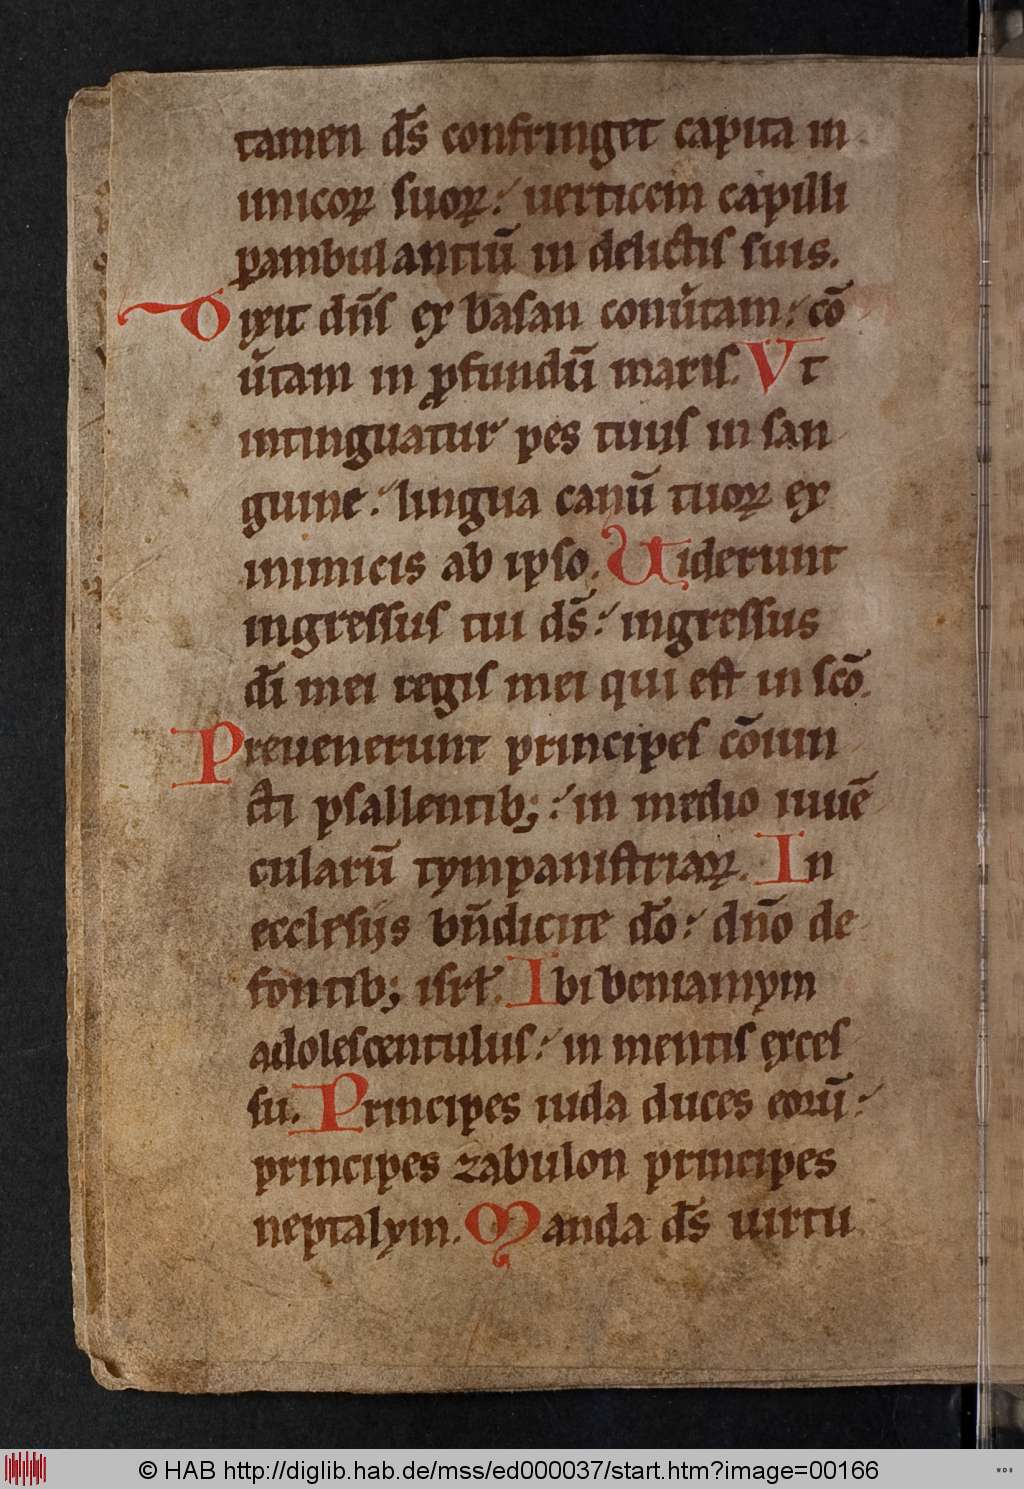 tamen ds̄ confringet capita in
imicoꝝ suoꝝ: uerticem capilli
ꝑambulantiū in delictis suis.
Dixit dn̄s ex basan conūtam: cō
ūtam in ꝓfundū maris. Vt
intinguatur pes tuus in san
guine: lingua canū tuoꝝ ex
inimicis ab ipso. Uiderunt
ingressus tui ds̄: ingressus
dī mei regis mei qui est in scō.
Preuenerunt principes cōiun
cti psallentib; : in medio iuuē
cularū tympanistriaꝝ. In
ecclesijs bn̄dicite dō: dn̄o de
fontib; isrł. Ibi beniamym
adolescentulus: in mentis exces
su. Principes iuda duces eorū:
principes zabulon principes
neptalym. Manda ds̄ uirtu
© HAB http://diglib.hab.de/mss/ed000037/start.htm?image=00166